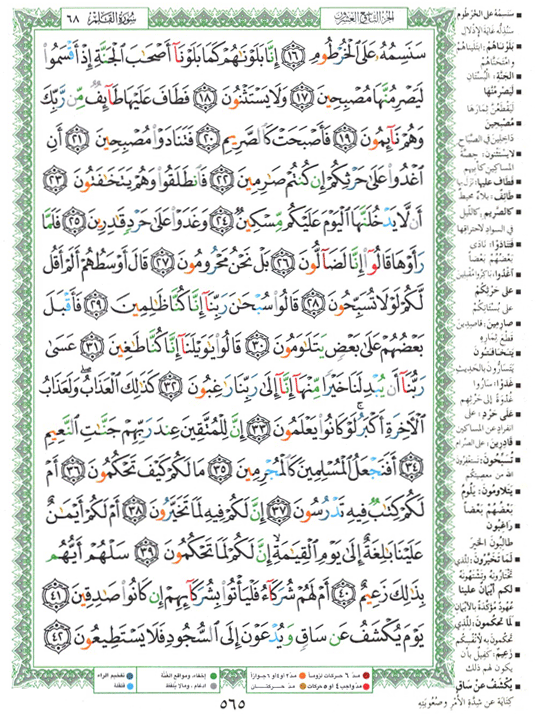 الجزء التاسع والعشرون
سورة القلم ٦٨
سَنَسِمُهُ عَلَى الْخُرْطُومِ ١٦ إِنَّا بَلَوْنَاهُمْ كَمَا بَلَوْنَا أَصْحَابَ الْجَنَّةِ إِذْ أَقْسَمُوا
لَيَصْرِمُنَّهَا مُصْبِحِينَ ١٧ وَلَا يَسْتَثْنُونَ ١٨ فَطَافَ عَلَيْهَا طَائِفٌ مِّن رَّبِّكَ
وَهُمْ نَائِمُونَ ١٩ فَأَصْبَحَتْ كَالصَّرِيمِ ٢٠ فَتَنَادَوْا مُصْبِحِينَ ٢١ أَنِ
اغْدُوا عَلَى حَرْثِكُمْ إِن كُنتُمْ صَارِمِينَ ٢٢ فَانطَلَقُوا وَهُمْ يَتَخَافَتُونَ ٢٣
أَن لَّا يَدْخُلَنَّهَا الْيَوْمَ عَلَيْكُم مِّسْكِينٌ ٢٤ وَغَدَوْا عَلَى حَرْدٍ قَادِرِينَ ٢٥ فَلَمَّا
رَأَوْهَا قَالُوا إِنَّا لَضَالُّونَ ٢٦ بَلْ نَحْنُ مَحْرُومُونَ ٢٧ قَالَ أَوْسَطُهُمْ أَلَمْ أَقُل
لَّكُمْ لَوْلَا تُسَبِّحُونَ ٢٨ قَالُوا سُبْحَانَ رَبِّنَا إِنَّا كُنَّا ظَالِمِينَ ٢٩ فَأَقْبَلَ
بَعْضُهُمْ عَلَى بَعْضٍ يَتَلَاوَمُونَ ٣٠ قَالُوا يَا وَيْلَنَا إِنَّا كُنَّا طَاغِينَ ٣١ عَسَى
رَبُّنَا أَن يُبْدِلَنَا خَيْرًا مِّنْهَا إِنَّا إِلَى رَبِّنَا رَاغِبُونَ ٣٢ كَذَلِكَ الْعَذَابُ وَلَعَذَابُ
الْآخِرَةِ أَكْبَرُ لَوْ كَانُوا يَعْلَمُونَ ٣٣ إِنَّ لِلْمُتَّقِينَ عِندَ رَبِّهِمْ جَنَّاتِ النَّعِيمِ
٣٤ أَفَنَجْعَلُ الْمُسْلِمِينَ كَالْمُجْرِمِينَ ٣٥ مَا لَكُمْ كَيْفَ تَحْكُمُونَ ٣٦ أَمْ
لَكُمْ كِتَابٌ فِيهِ تَدْرُسُونَ ٣٧ إِنَّ لَكُمْ فِيهِ لَمَا تَخَيَّرُونَ ٣٨ أَمْ لَكُمْ أَيْمَانٌ
عَلَيْنَا بَالِغَةٌ إِلَى يَوْمِ الْقِيَامَةِ إِنَّ لَكُمْ لَمَا تَحْكُمُونَ ٣٩ سَلْهُمْ أَيُّهُم
بِذَلِكَ زَعِيمٌ ٤٠ أَمْ لَهُمْ شُرَكَاءُ فَلْيَأْتُوا بِشُرَكَائِهِمْ إِن كَانُوا صَادِقِينَ ٤١
يَوْمَ يُكْشَفُ عَن سَاقٍ وَيُدْعَوْنَ إِلَى السُّجُودِ فَلَا يَسْتَطِيعُونَ ٤٢
سَنَسِمُهُ على الخرطوم
سنذله غاية الإذلال
بلوناهم: ابتليناهم
وامتحناهم
الجنة: البستان
ليصرمنها
ليقطعن ثمارها
مصبحين
داخلين في الصباح
لا يستثنون: حصة
المساكين كأبيهم
فطاف عليها: نزل بها
طائف: بلاء محيط
كالصريم: كالليل
في السواد لاحتراقها
فتنادوا: نادى
بعضهم بعضا
اغدوا: باكروا مقبلين
على حرثكم
على بستانكم
صارمين: قاصدين
قطع ثماره
يتخافتون
يتسارون بالحديث
غدوا: ساروا
غدوة إلى حرثهم
على حرد: على
انفراد عن المساكين
قادرين: على الصرام
تسبحون: تستغفرون
الله من معصيتكم
يتلاومون: يلوم
بعضهم بعضا
راغبون
طالبون الخير
لما تخيرون: للذي
تختارونه وتشتهونه
لكم أيمان علينا
عهود مؤكدة بالأيمان
لما تحكمون: للذي
تحكمون به لأنفسكم
زعيم: كفيل بأن
يكون لهم ذلك
يكشف عن ساق
كناية عن شدة الأمر وصعوبته
مد ٦ حركات لزوما مد ٢ أو ٤ أو ٦ جوازا
مد واجب ٤ أو ٥ حركات مد حركتان
إخفاء، ومواقع الغنة
ادغام، وما لا يلفظ
تفخيم الراء
قلقلة
٥٦٥